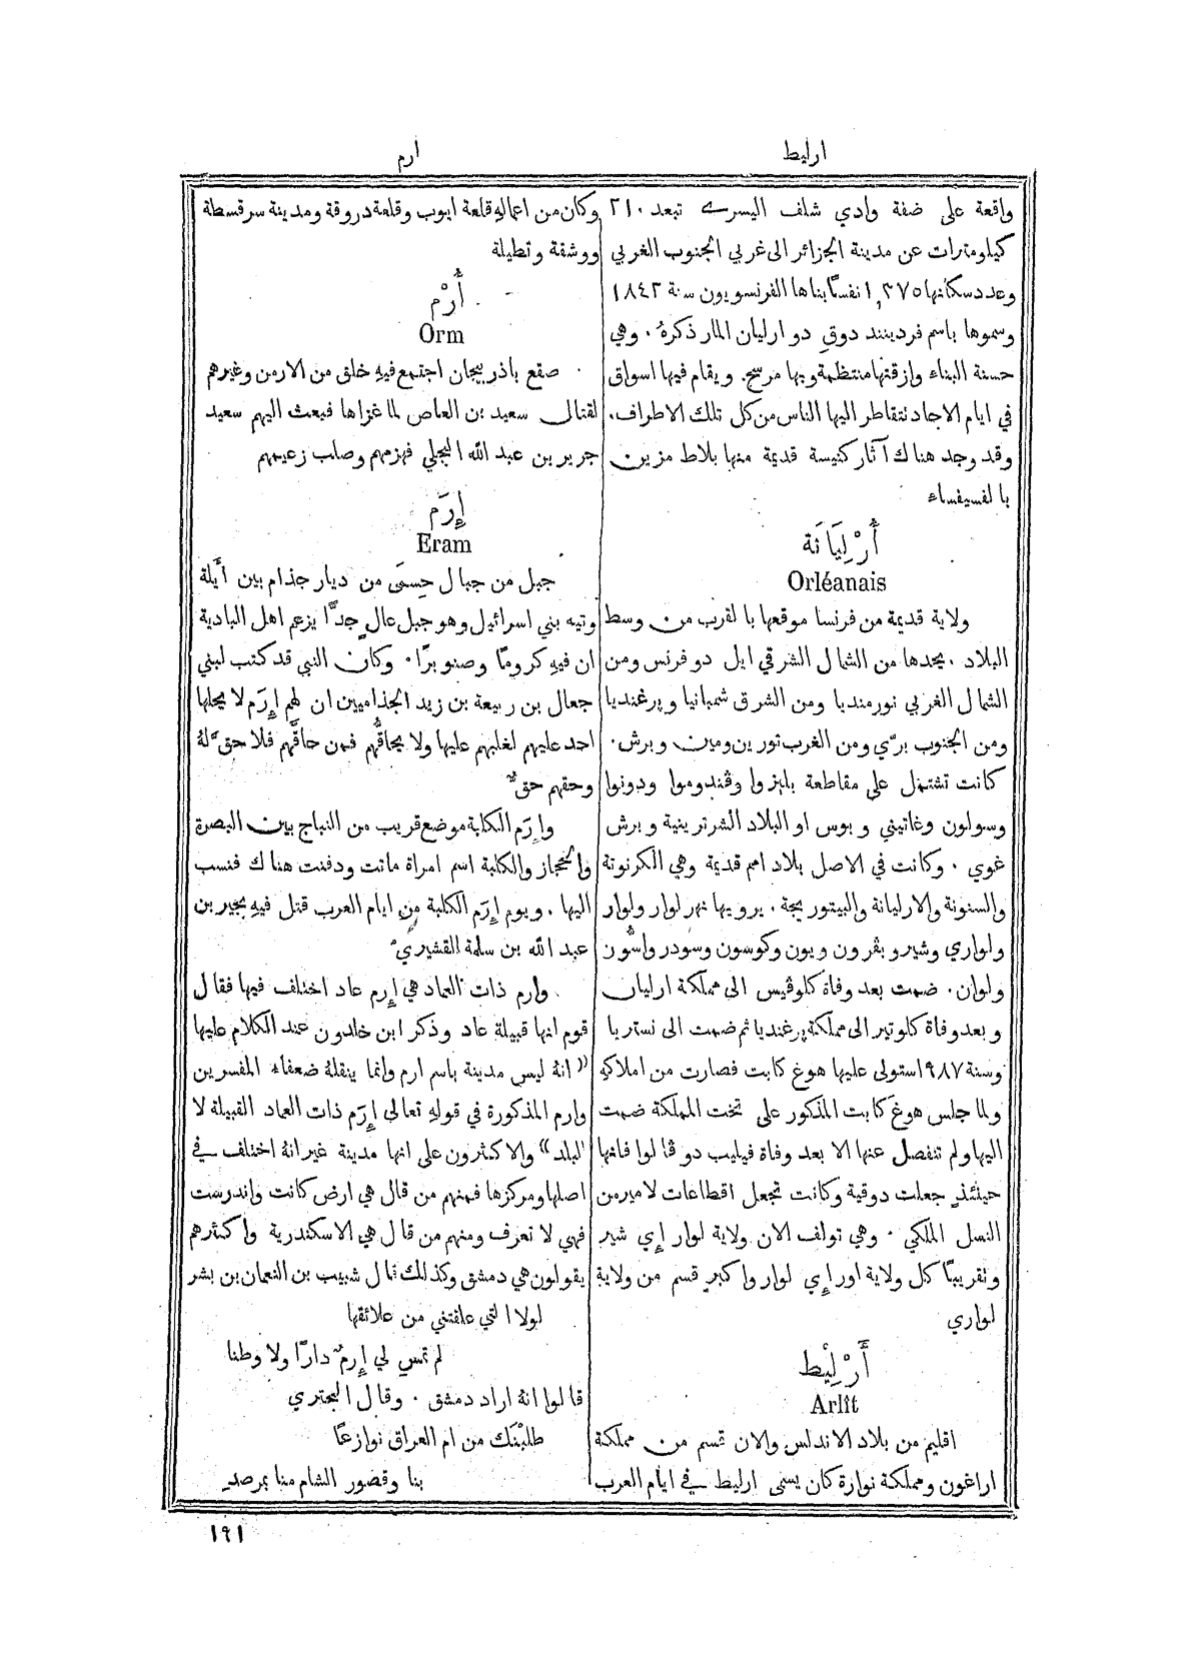 ارليط
ارم
واقعة على ضفة وادي شلف اليسرے تبعد ٢١٠
كيلومترات عن مدينة الجزائر الى غربي الجنوب الغربي
وعدد سكانها ١,٣٧٥ نفسًا بناها الفرنسويون سنة ١٨٤٢
وسموها باسم فرديند دوق دو ارليان المار ذكرهُ. وهي
حسنة البناء وازقتها منتظمة وبها مرسح. ويقام فيها اسواق
في ايام الاحاد تتقاطر اليها الناس من كل تلك الاطراف.
وقد وجد هناك آثار كنيسة قديمة منها بلاط مزين
بالفسيفساء
أُرْلِيَانَة
Orléanais
ولاية قديمة من فرنسا موقعها بالقرب من وسط
البلاد. يحدها من الشمال الشرقي ايل دو فرنس ومن
الشمال الغربي نورمنديا ومن الشرق شمبانيا وبرغنديا
ومن الجنوب برّي ومن الغرب تورين ومين وبرش.
كانت تشتمل على مقاطعة بليزوا وڤندوموا ودونوا
وسولون وغاتيني وبوس او البلاد الشرترينية وبرش
غوي. وكانت في الاصل بلاد امم قديمة وهي الكرنوتة
والسنونة والارليانة والبيتوريجة. يرويها نهر لوار ولوار
ولواري وشير وبڤرون ويون وكوسون وسودر واسُّون
ولوان. ضمت بعد وفاة كلوڤيس الى مملكة ارليان
وبعد وفاة كلوتير الى مملكة برغنديا ثم ضمت الى نستريا
وسنة ٩٨٧ استولى عليها هوغ كابت فصارت من املاكه
ولما جلس هوغ كابت المذكور على تخت المملكة ضمت
اليها ولم تنفصل عنها الا بعد وفاة فيليب دو ڤالوا فانها
حينئذٍ جعلت دوقية وكانت تجعل اقطاعات لامير من
النسل الملكي. وهي تولف الان ولاية لوار إي شير
وتقريبًا كل ولاية اور إي لوار واكبر قسم من ولاية
لواري
أَرْلِيْط
Arlît
اقليم من بلاد الاندلس والان قسم من مملكة
اراغون ومملكة نوارة كان يسمى ارليط في ايام العرب
وكان من اعماله قلعة ايوب وقلعة دروقة ومدينة سرقسطة
ووشقة وتطيلة
أُرْم
Orm
صقع باذربيجان اجتمع فيه خلق من الارمن وغيرهم
لقتال سعيد بن العاص لما غزاها فبعث اليهم سعيد
جرير بن عبد الله البجلي فهزمهم وصلب زعيمهم
إِرَم
Eram
جبل من جبال حِسمَى من ديار جذام بين أَيلة
وتيه بني اسرائيل وهو جبل عالٍ جدًّا يزعم اهل البادية
ان فيه كرومًا وصنوبرًا. وكان النبي قد كتب لبني
جعال بن ربيعة بن زيد الجذاميين ان لهم إِرَم لا يحلها
احد عليهم لغلبهم عليها ولا يحاقُّهم فمن حاقَّهم فلا حقَّ لهُ
وحقهم حقٌّ
وإِرَم الكلبة موضع قريب من النباج بين البصرة
والحجاز والكلبة اسم امراة ماتت ودفنت هناك فنسب
اليها. ويوم إِرَم الكلبة من ايام العرب قتل فيه بجير بن
عبد الله بن سلمة القشيريّ
وارم ذات العماد هي إِرم عاد اختلف فيها فقال
قوم انها قبيلة عاد وذكر ابن خلدون عند الكلام عليها
«انهُ ليس مدينة باسم ارم وانما ينقلهُ ضعفاء المفسرين
وارم المذكورة في قوله تعالى إِرَم ذات العماد القبيلة لا
البلد» والاكثرون على انها مدينة غير انهُ اختلف في
اصلها ومركزها فمنهم من قال هي ارض كانت واندرست
فهي لا تعرف ومنهم من قال هي الاسكندرية واكثرهم
يقولون هي دمشق وكذلك قال شبيب بن النعمان بن بشر
لولا التي علقتني من علائقها
لم تمسِ لي إِرمٌ دارًا ولا وطنا
قالوا انهُ اراد دمشق. وقال البحتري
طلبْنَك من ام العراق نوازعًا
بنا وقصور الشام منا بمرصدِ
١٩١